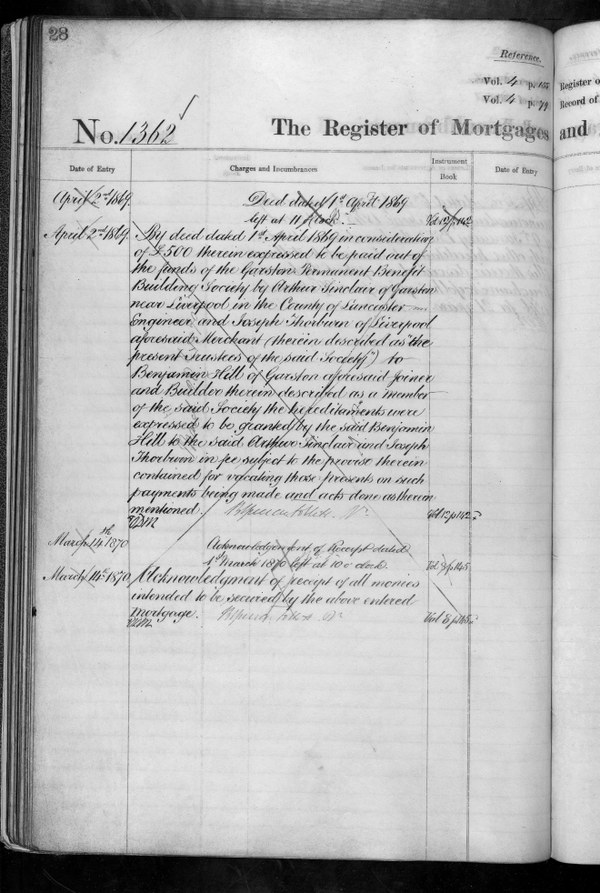 28
Reference.
Vol. 4 p. 155
Vol. 4 p. 79
No. 1362
The Register of Mortgages and
Register o
Record of
Date of Entry
Charges and Incumbrances
Instrument
Book
Date of Entry
April 2nd 1869.
Deed dated 1st April 1869
left at 11 o'clock.
Vol 12 p 142
April 2nd 1869.
By deed dated 1st April 1869 in consideration
of £500 therein expressed to be paid out of
the funds of the Garston Permanent Benefit
Building Society by Arthur Sinclair of Garston
near Liverpool in the County of Lancaster
Engineer and Joseph Thorburn of Liverpool
aforesaid Merchant (therein described as "the
present Trustees of the said Society") to
Benjamin Hill of Garston aforesaid Joiner
and Builder therein described as a member
of the said Society the hereditaments were
expressed to be granted by the said Benjamin
Hill to the said Arthur Sinclair and Joseph
Thorburn in fee subject to the proviso therein
contained for vacating those presents on such
payments being made and acts done as therein
mentioned.
Vol 12 p 142
March 14th 1870
Acknowledgment of Receipt dated
1st March 1870 left at 10 o'clock
Vol 8 p 165
March 14th 1870
Acknowledgment of receipt of all monies
intended to be secured by the above entered
Mortgage.
Vol 8 p 165